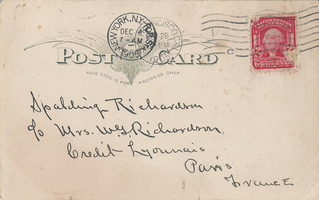 NEW YORK, N.Y.
DEC 4
7-AM
POST CARD
THIS SIDE IS FOR ADDRESS ONLY.
Spalding Richardson
c/o Mrs. WG Richardson
Credit Lyonnais
Paris
France